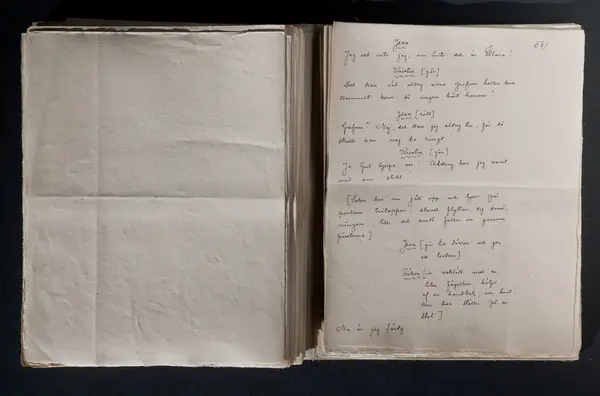 Jean
61/
Jag vet inte jag, om inte det är Clara!
Kristin [går]
Det kan väl aldrig vara grefven heller som
kommit hem så ingen hört honom!
Jean [rädd]
Grefven? Nej, det kan jag aldrig tro, för då
skulle han nog ha ringt!
Kristin [går]
Ja Gud hjelpe oss! Aldrig har jag varit
med om slikt!
[Solen har nu gått upp och lyser på
parkens trätoppar; skenet flyttar sig små-
ningom, tills det snett faller in genom
fönsterna.]
Jean [går till dörren och ger
ett tecken]
Fröken [in resklädd med en
liten fågelbur, höljd
af en handduk, som
hon ställer på en
stol]
Nu är jag färdig